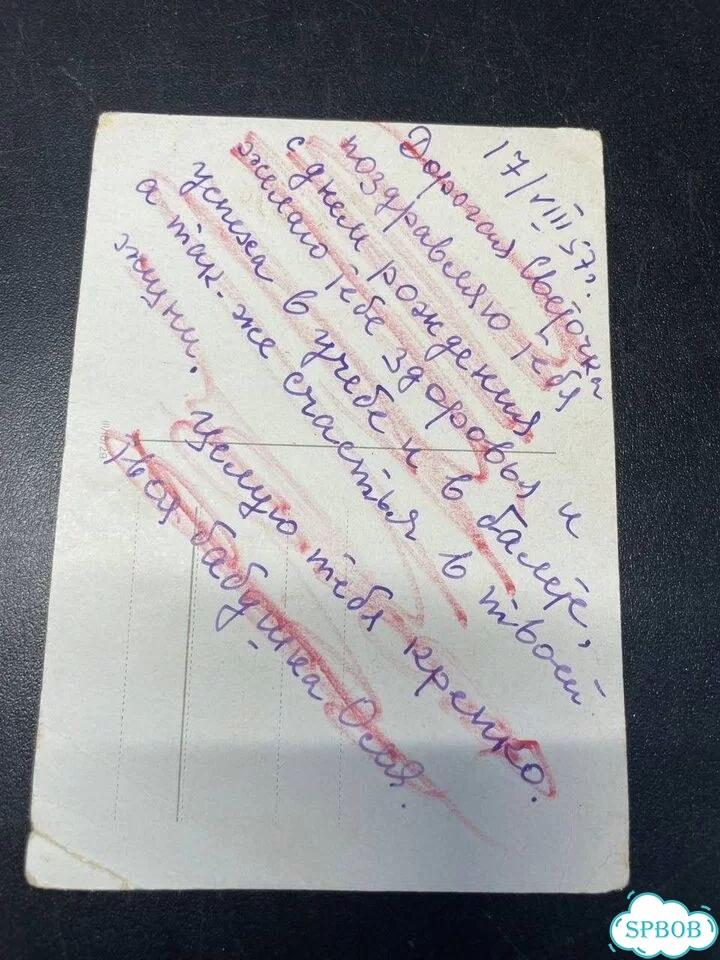 17/VIII 57г.
Дорогая Светочка
поздравляю тебя
с днем рождения
желаю тебе здоровья и
успеха в учебе и в балете,
а так-же счастья в твоей
жизни.
Целую тебя крепко.
твоя бабушка Оля.
SPBOB